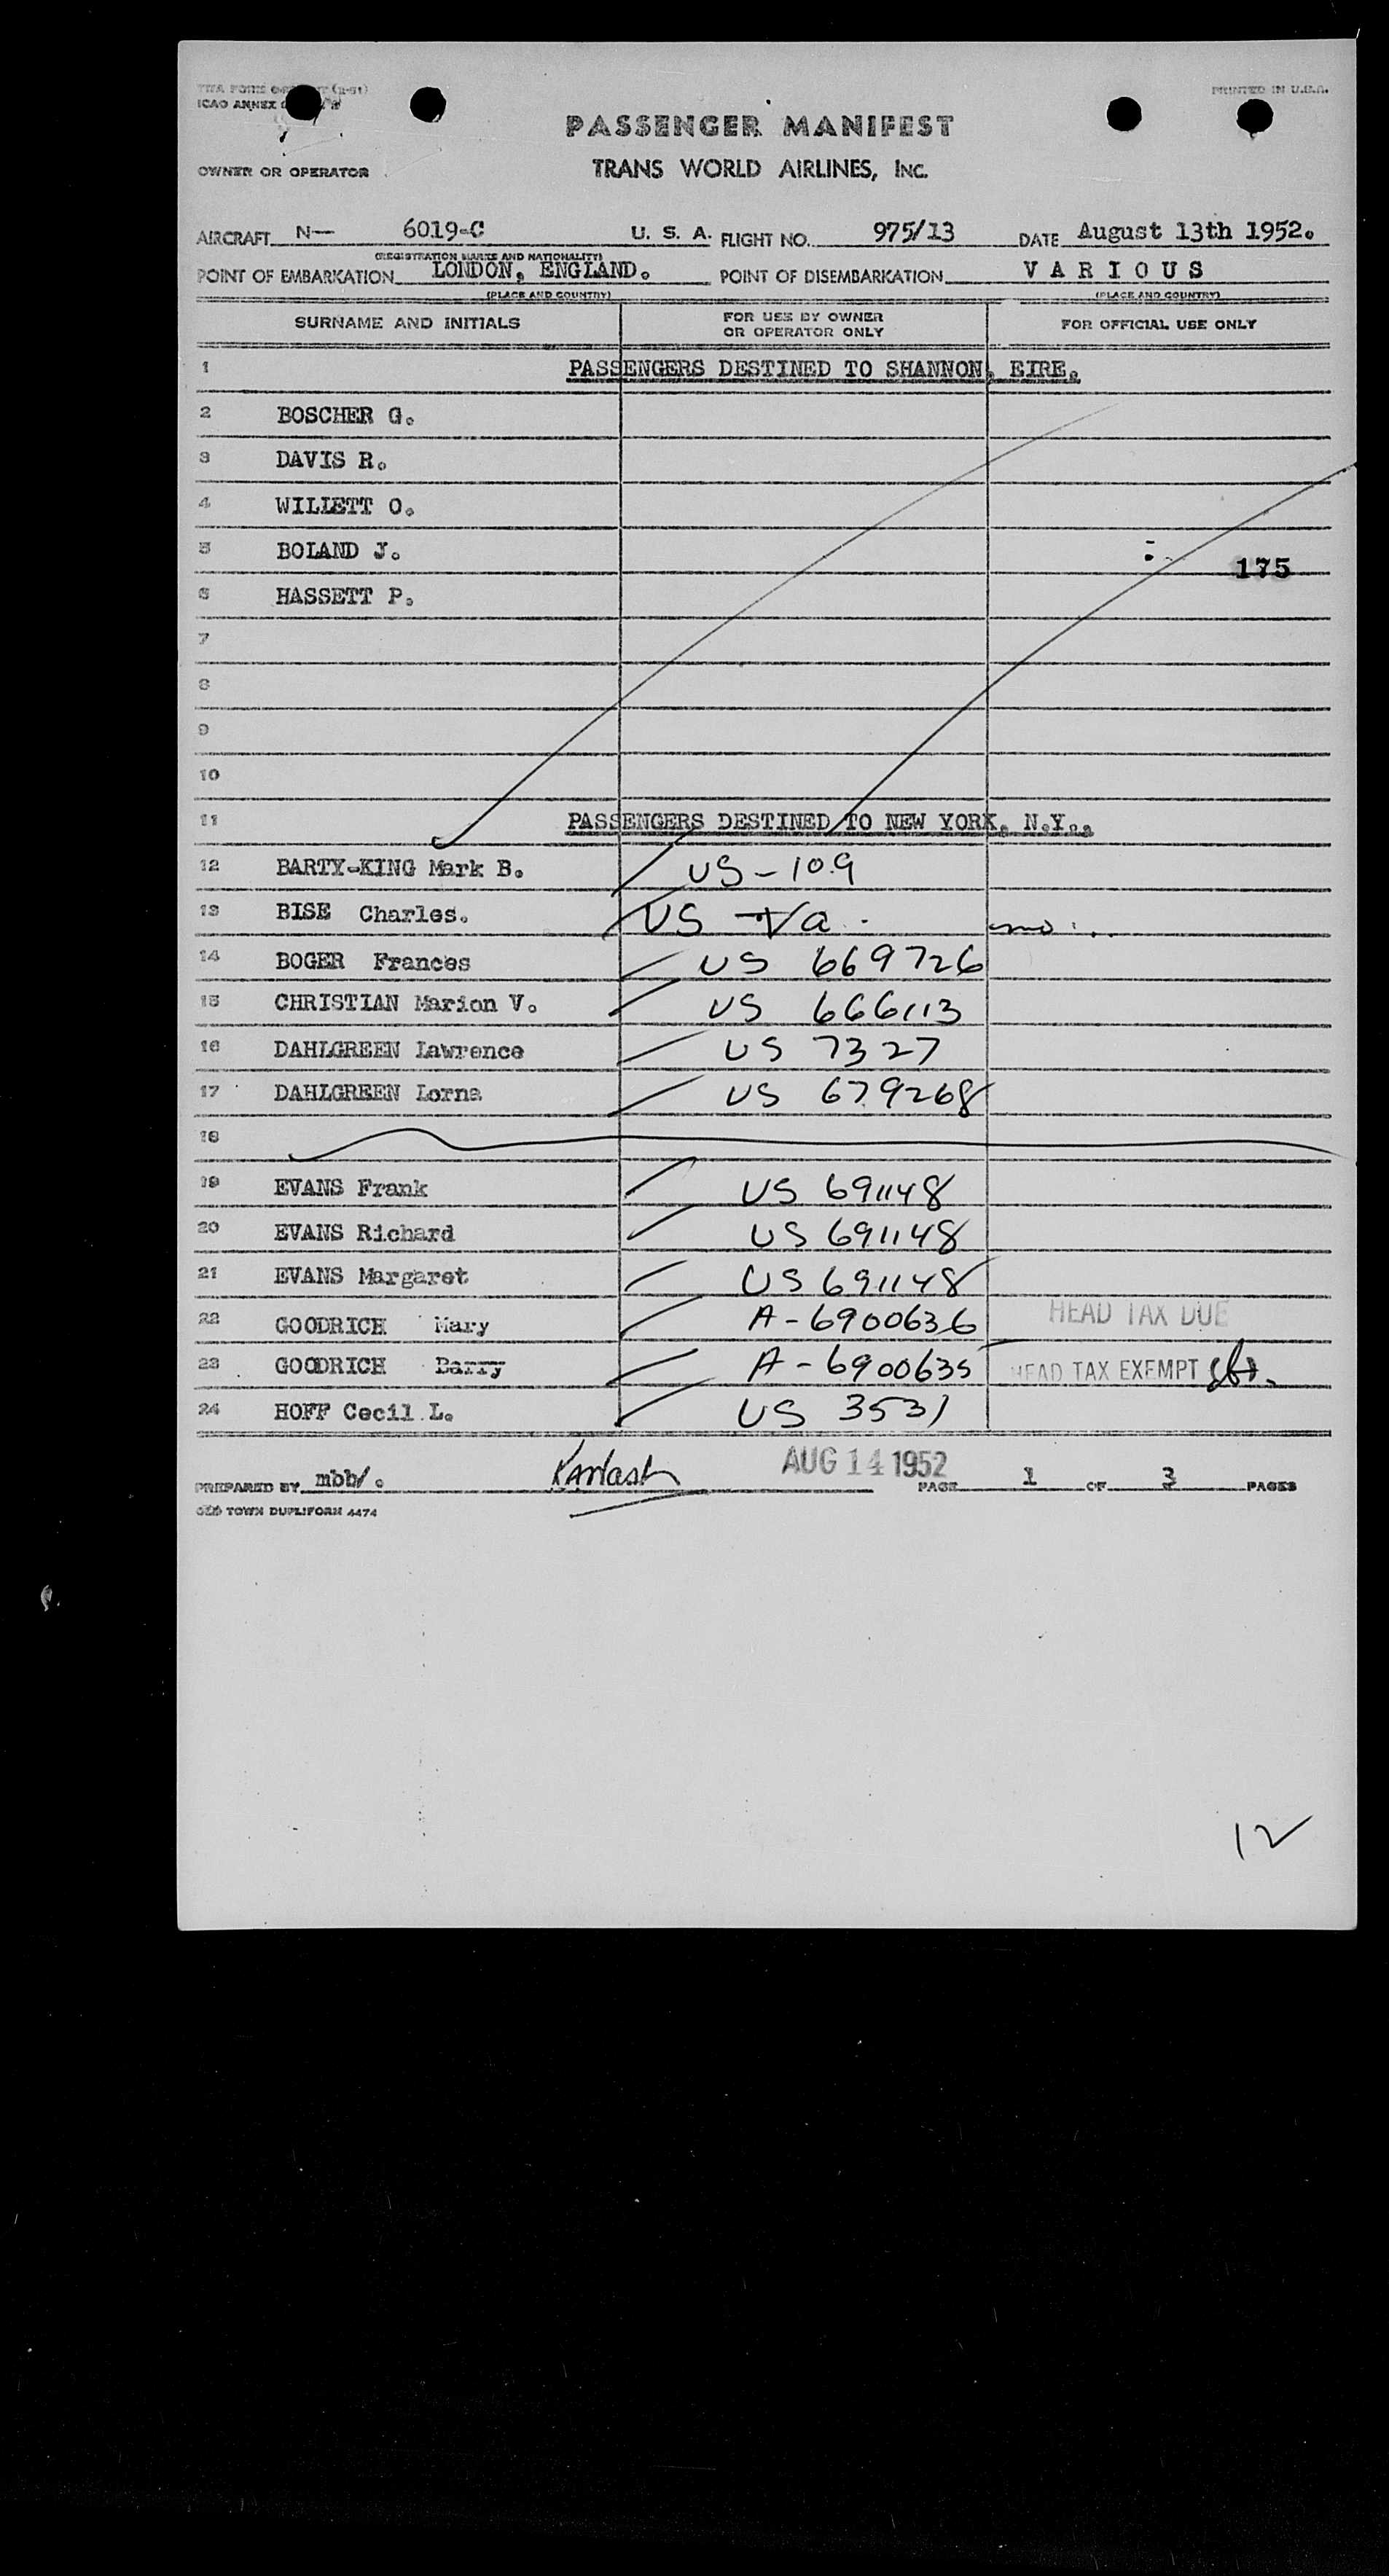 ICAO ANNEX
PRINTED IN U.S.A.
PASSENGER MANIFEST
OWNER OR OPERATOR
TRANS WORLD AIRLINES, INC.
AIRCRAFT N— 6019-C U. S. A. FLIGHT NO. 975/13 DATE August 13th 1952.
(REGISTRATION MARKS AND NATIONALITY)
POINT OF EMBARKATION LONDON, ENGLAND. POINT OF DISEMBARKATION V A R I O U S
(PLACE AND COUNTRY) (PLACE AND COUNTRY)
SURNAME AND INITIALS FOR USE BY OWNER OR OPERATOR ONLY FOR OFFICIAL USE ONLY
1 PASSENGERS DESTINED TO SHANNON, EIRE.
2 BOSCHER G.
3 DAVIS R.
4 WILLETT O.
5 BOLAND J.
175
6 HASSETT P.
7
8
9
10
11 PASSENGERS DESTINED TO NEW YORK, N.Y.,
12 BARTY-KING Mark B. US - 109
13 BISE Charles. US Va.
14 BOGER Frances US 669726
15 CHRISTIAN Marion V. US 666113
16 DAHLGREEN Lawrence US 7327
17 DAHLGREEN Lorna US 679268
18
19 EVANS Frank US 691148
20 EVANS Richard US 691148
21 EVANS Margaret US 691148
22 GOODRICH Mary A-6900636 HEAD TAX DUE
23 GOODRICH Barry A-6900635 HEAD TAX EXEMPT
24 HOFF Cecil L. US 3531
PREPARED BY mbb/. AUG 14 1952 PAGE 1 OF 3 PAGES
OLD TOWN DUPLIFORM 4474
12